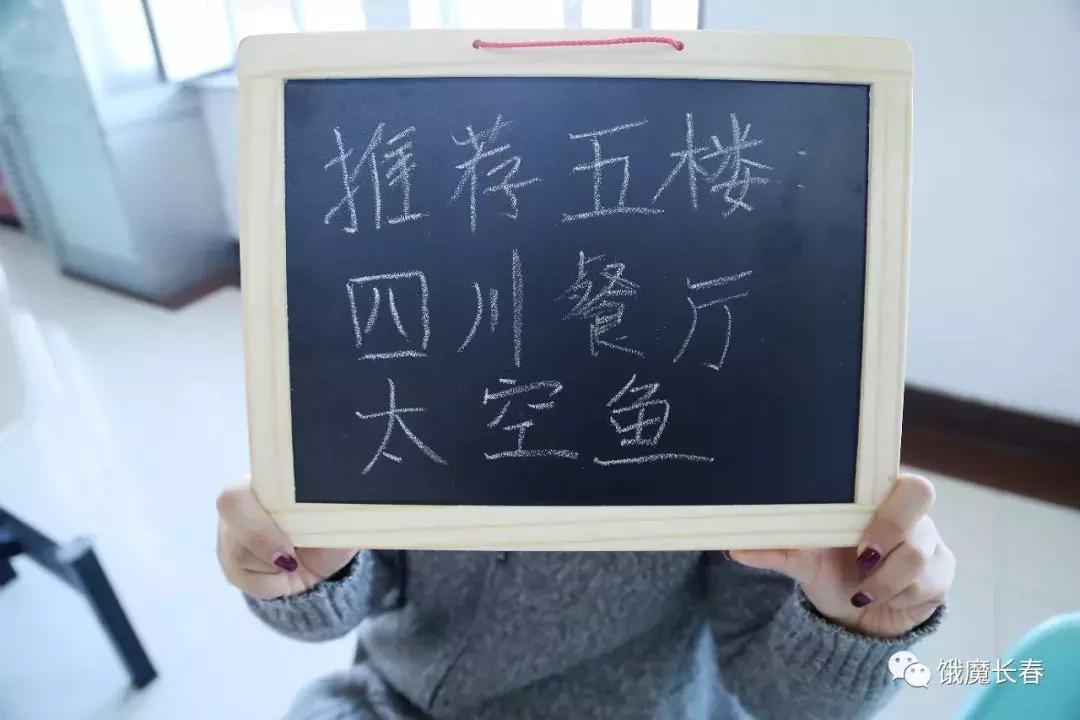 推荐五楼
四川餐厅
太空鱼
饿魔长春